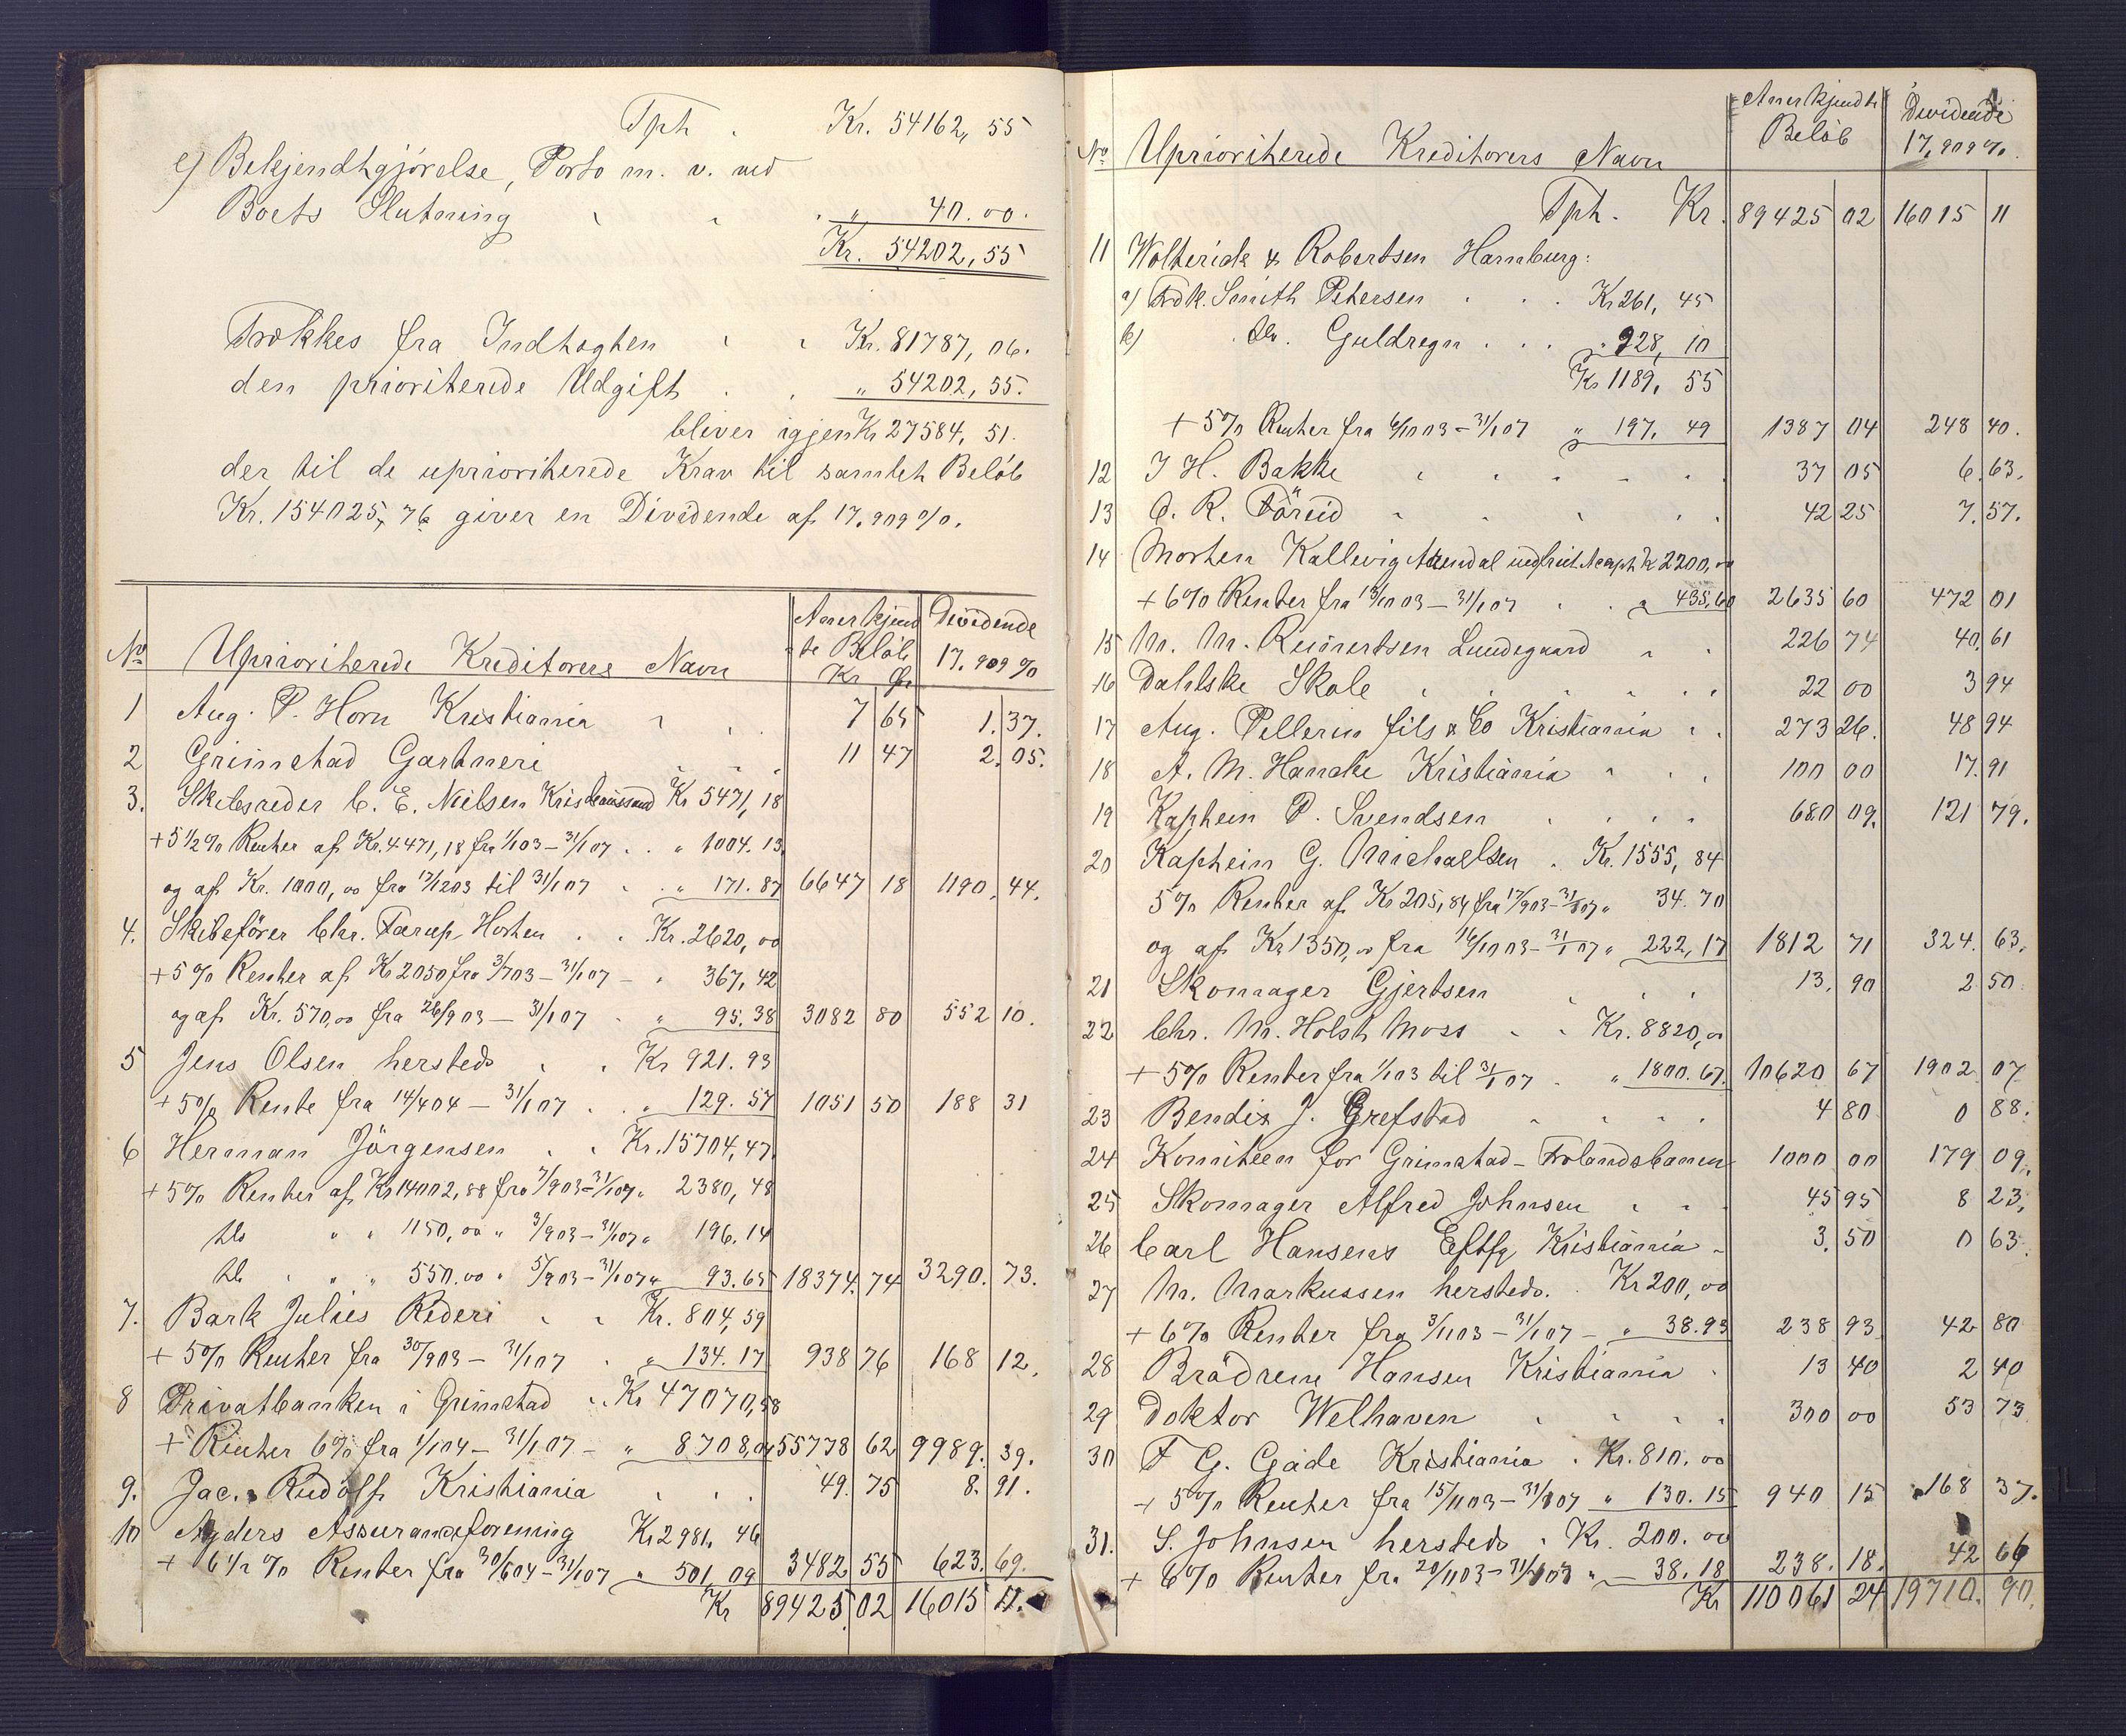 Tph. Kr. 54162, 55
e) Bekjendtgjörelse, Porto m. v. ved
Boets Slutning " 40.00.
Kr. 54202, 55
Trækkes fra Indtægten Kr. 81787, 06.
den prioriterede Udgift " 54202, 55.
bliver igjen Kr 27584, 51.
der til de uprioriterede Krav til samlet Belöb
Kr. 154025, 76 giver en Dividende af 17.909 %.
No Uprioriterede Kreditorers Navn Anerkjend-te Belöb Kr Ør Dividende 17.909 %
1 Aug. P. Horn Kristiania 7 65 1.37.
2 Grimstad Gartneri 11 47 2.05.
3. Skibsreder C. E. Nielsen Kristianssand Kr 5471, 18
+ 5 1/2 % Renter af Kr. 4471, 18 fra 1/1 03 - 31/1 07 " 1004. 13
og af Kr. 1000, 00 fra 17/12 03 til 31/1 07 " 171. 87 6647 18 1190. 44.
4. Skibsfører Chr. Færup Horten Kr. 2620, 00
+ 5 % Renter af Kr 2050 fra 3/7 03 - 31/1 07 - " 367, 42
og af Kr. 570,00 fra 26/9 03 - 31/1 07 " 95. 38 3082 80 552 10.
5 Jens Olsen hersteds Kr 921. 93
+ 5 % Rente fra 14/4 04 - 31/1 07 " 129. 57 1051 50 188 31
6 Herman Jörgensen Kr. 15704, 47
+ 5 % Renter af Kr 14002, 88 fra 7/9 03 - 31/1 07 " 2380, 48
do " " 1150, 00 " 3/9 03 - 31/1 07 " 196. 14
do " " 550.00 " 5/9 03 - 31/1 07 " 93. 65 18374. 74 3290. 73.
7. Bark Julies Rederi Kr. 804, 59
+ 5 % Renter fra 30/9 03 - 31/1 07 " 134. 17 938 76 168 12.
8 Privatbanken i Grimstad Kr 47070, 58
+ Renter 6 % fra 1/1 04 - 31/1 07 - " 8708, 04 55778 62 9989. 39.
9. Jac. Rudolf Kristiania 49. 75 8. 91.
10 Agders Assuranceforening Kr 2981, 46
+ 6 1/2 % Renter fra 30/6 04 - 31/1 07 " 501, 09 3482 55 623. 69.
Kr 89425 02 16015 11.
No Uprioriterede Kreditorers Navn Anerkjendte Belöb Dividende 17.909 %.
Tph. Kr. 89425 02 16015 11
11 Wolterick & Robertsen Hamburg:
a) Frdk. Smith Petersen Kr 261, 45
b) do. Guldregn " 928, 10
Kr 1189, 55
+ 5 % Renter fra 6/10 03 - 31/1 07 " 197. 49 1387 04 248 40.
12 J H. Bakke 37 05 6. 63.
13 O. R. Föreid 42 25 7. 57.
14 Morten Kallevig Arendal Kr 2200, 00
+ 6 % Renter fra 13/10 03 - 31/1 07 " 435,60 2635 60 472 01
15 M. M. Reiersen Lundegaard 226 74 40. 61
16 Dahlske Skole 22 00 3 94
17 Aug. Pellerin fils & Co Kristiania 273 26. 48 94
18 A. M. Hancke Kristiania 100 00 17. 91
19 Kaptein P. Svendsen 680 09. 121 79.
20 Kaptein G. Michaelsen Kr. 1555, 84
5 % Renter af Kr 205, 84 fra 17/9 03 - 31/1 07 " 34. 70
og af Kr 1350, 00 fra 16/10 03 - 31/1 07 " 222, 17 1812 71 324. 63.
21 Skomager Gjertsen 13. 90 2 50
22 Chr. M. Holst Moss Kr. 8820, 00
+ 5 % Renter fra 1/1 03 til 31/1 07 " 1800. 67. 10620 67 1902 07
23 Bendix J. Grefstad 4 80 0 88.
24 Komiteen for Grimstad - Frolandsbanen 1000 00 179 09.
25 Skomager Alfred Johnsen 45 95 8 23.
26 Carl Hansens Eftfg Kristiania 3. 50 0 63.
27 M. Markussen hersteds. Kr 200, 00
+ 6 % Renter fra 3/11 03 - 31/1 07 - " 38. 93 238 93 42 80
28 Brödrene Hansen Kristiania 13 40 2 40
29 Doktor Welhaven 300 00 53 73
30 F G. Gade Kristiania Kr. 810. 00
+ 5 % Renter fra 15/11 03 - 31/1 07 " 130. 15 940 15 168 37.
31. S. Johnsen hersteds Kr. 200. 00
+ 6 % Renter fra 20/11 03 - 31/1 07 " 38. 18 238. 18. 42 66
Kr 110061 24 19710. 90.